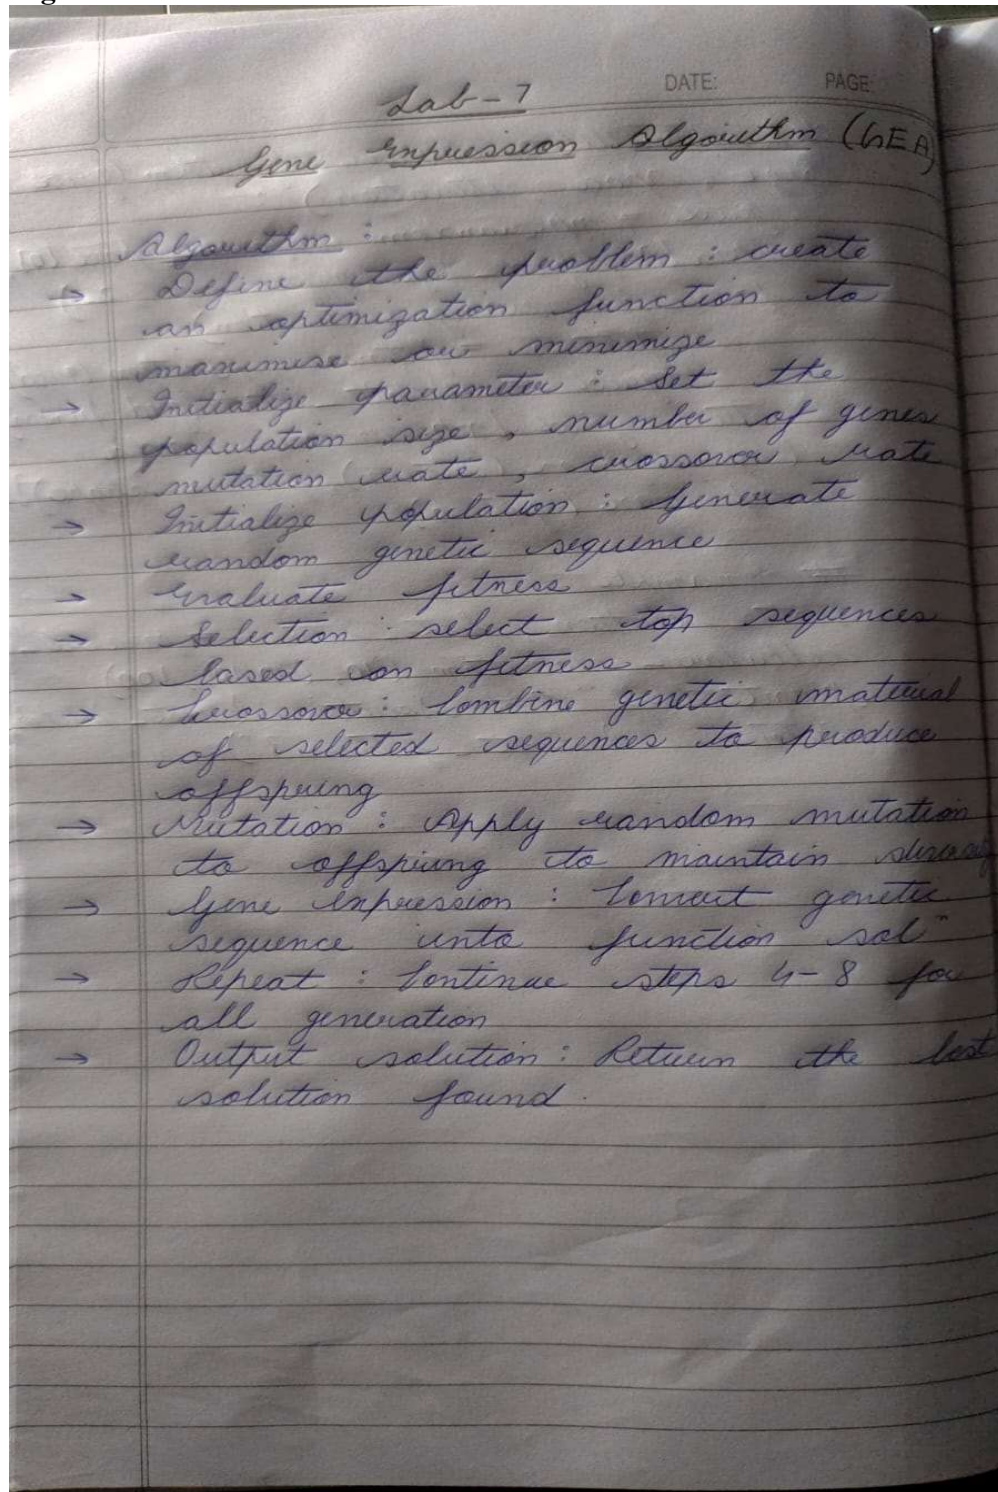 DATE: PAGE:
Lab - 7
Gene Expression Algorithm (GEA)
Algorithm :
→ Define the problem : create
an optimization function to
maximise or minimize
→ Initialize parameter : Set the
population size , number of genes
mutation rate , crossover rate
→ Initialize population : Generate
random genetic sequence
→ Evaluate fitness
→ Selection : select top sequences
based on fitness
→ Crossover : Combine genetic material
of selected sequences to produce
offspring
→ Mutation : Apply random mutation
to offspring to maintain diversity
→ Gene Expression : Convert genetic
sequence into function sol"
→ Repeat : Continue steps 4-8 for
all generation
→ Output solution : Return the best
solution found .